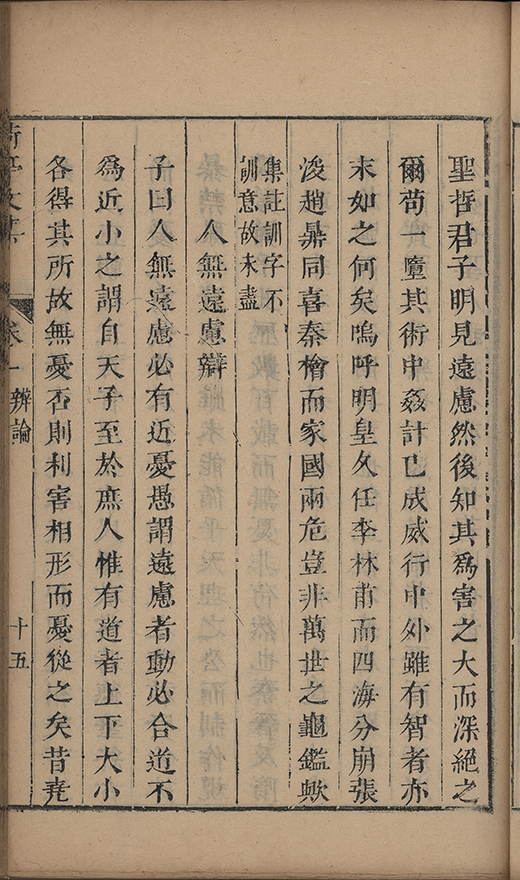 聖哲君子明見遠慮然後知其爲害之大而深絕之
爾苟一墮其術中姦計已成威行中外雖有智者亦
末如之何矣嗚呼明皇久任李林甫而四海分崩張
浚趙鼎同喜秦檜而家國兩危豈非萬世之龜鑑歟
集註訓字不
訓意故未盡
人無遠慮辯
子曰人無遠慮必有近憂愚謂遠慮者動必合道不
爲近小之謂自天子至於庶人惟有道者上下大小
各得其所故無憂否則利害相形而憂從之矣昔堯
卷一辨論
十五